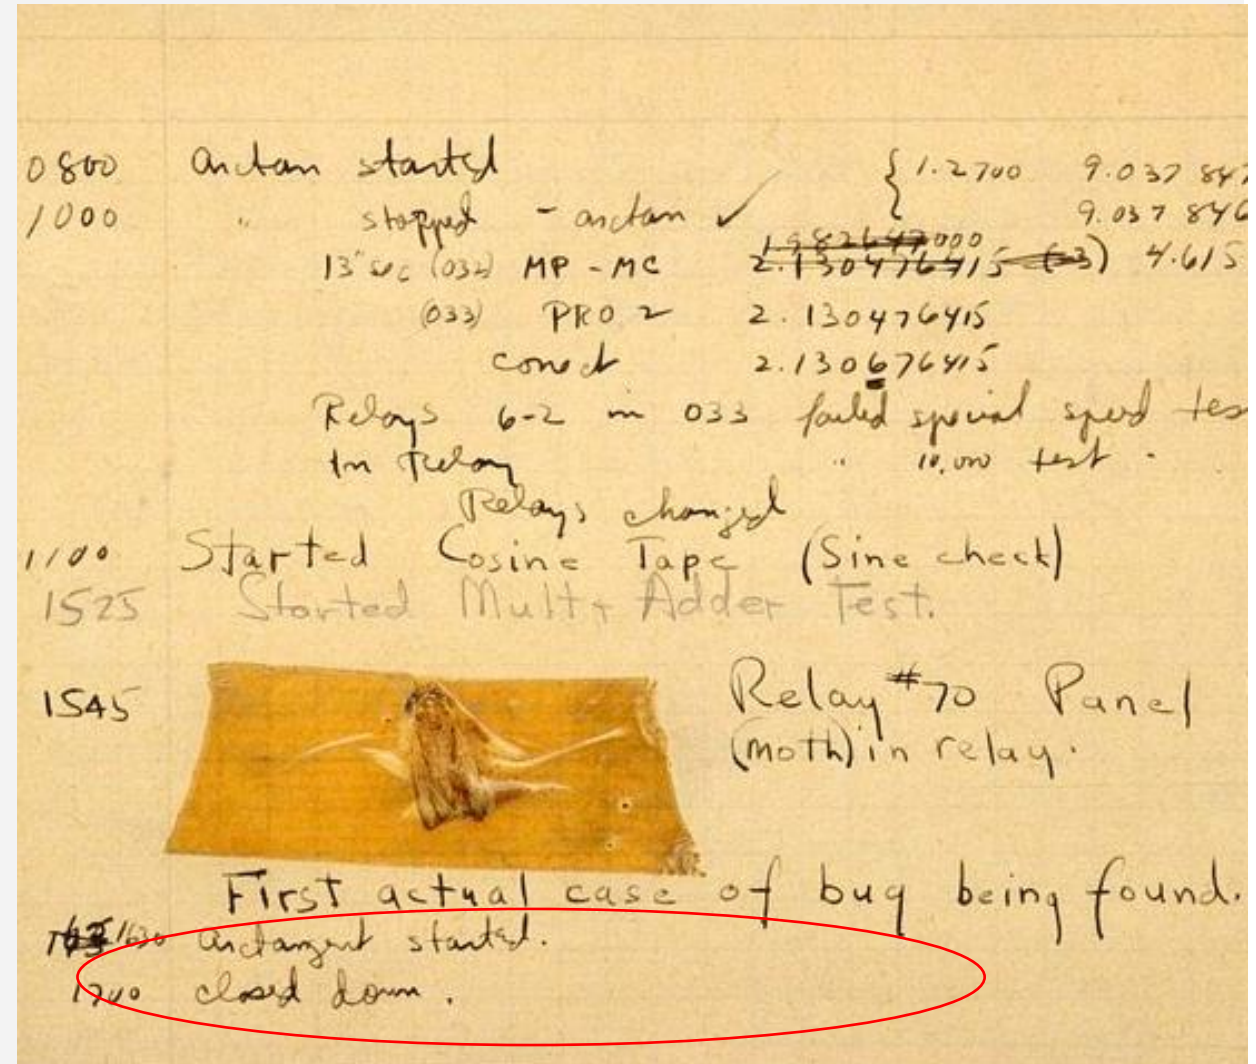 0800 Arctan started { 1.2700 9.037 847
1000 " stopped - arctan ✓ 9.037 846
13" sec (032) MP - MC 2.130476415 (-3) 4.615
(033) PRO 2 2.130476415
conect 2.130676415
Relays 6-2 in 033 failed special speed tes
In Relay " 10,000 test .
Relays changed
1100 Started Cosine Tape (Sine check)
1525 Started Mult + Adder Test.
1545 Relay #70 Panel
(moth) in relay.
First actual case of bug being found.
1630 arctangent started.
1700 closed down .